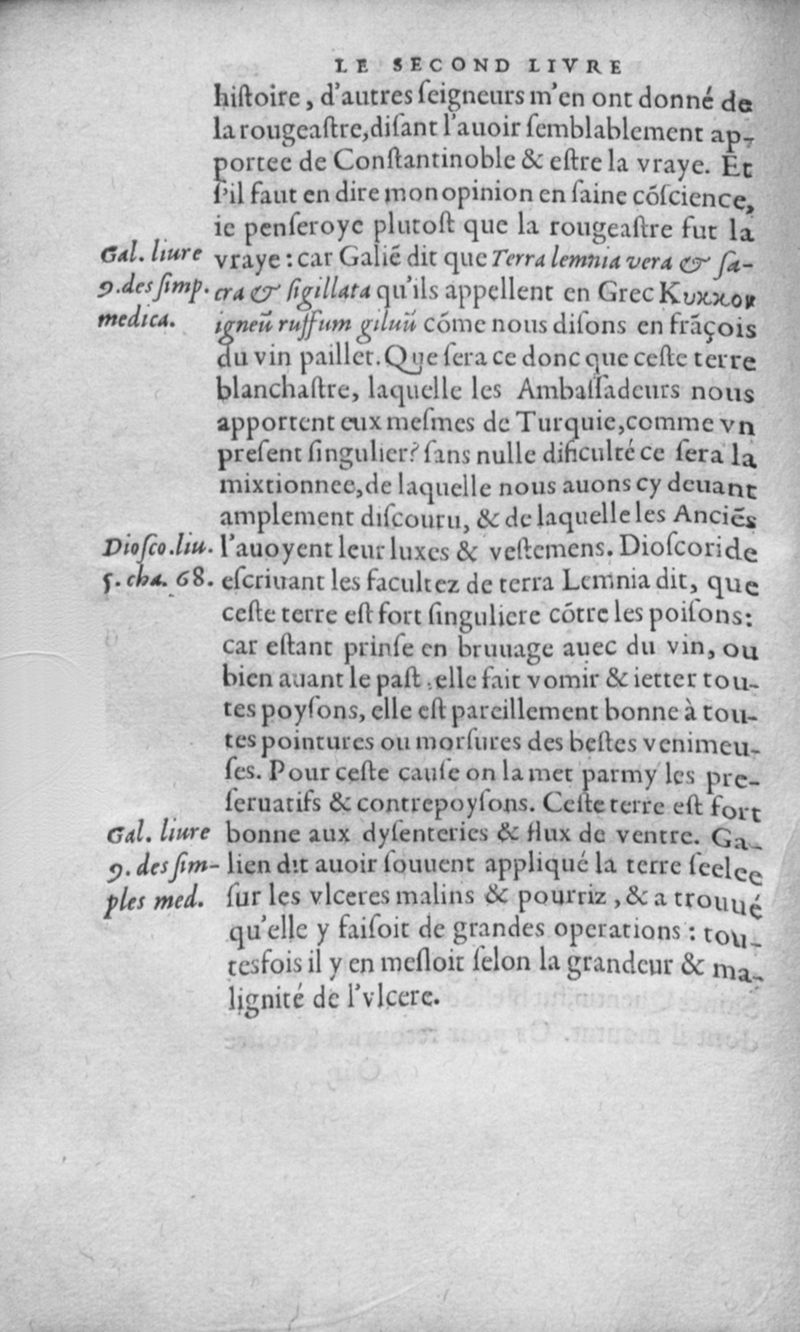 LE SECOND LIVRE
hiſtoire, d'autres ſeigneurs m'en ont donné de
la rougeaſtre, diſant l'auoir ſemblablement ap-
portee de Conſtantinoble & eſtre la vraye. Et
s'il faut en dire mon opinion en ſaine cõſcience,
ie penſeroye plutoſt que la rougeaſtre fut la
Gal. liure
9. des ſimp.
medica.
vraye : car Galiẽ dit que Terra lemnia vera & ſa-
cra & ſigillata qu'ils appellent en Grec Κυκκον
igneũ ruffum giluũ cõme nous diſons en frãçois
du vin paillet. Que ſera ce donc que ceſte terre
blanchaſtre, laquelle les Ambaſſadeurs nous
apportent eux meſmes de Turquie, comme vn
preſent ſingulier? ſans nulle dificulté ce ſera la
mixtionnee, de laquelle nous auons cy deuant
amplement diſcouru, & de laquelle les Anciẽs
Dioſco. liu.
5. cha. 68.
l'auoyent leur luxes & veſtemens. Dioſcoride
eſcriuant les facultez de terra Lemnia dit, que
ceſte terre eſt fort ſinguliere cõtre les poiſons:
car eſtant prinſe en bruuage auec du vin, ou
bien auant le paſt, elle fait vomir & ietter tou-
tes poyſons, elle eſt pareillement bonne à tou-
tes pointures ou morſures des beſtes venimeu-
ſes. Pour ceſte cauſe on la met parmy les pre-
ſeruatifs & contrepoyſons. Ceſte terre eſt fort
Gal. liure
9. des ſim-
ples med.
bonne aux dyſenteries & flux de ventre. Ga-
lien dit auoir ſouuent appliqué la terre ſeelee
ſur les vlceres malins & pourriz, & a trouué
qu'elle y faiſoit de grandes operations : tou-
tesfois il y en meſloit ſelon la grandeur & ma-
lignité de l'vlcere.